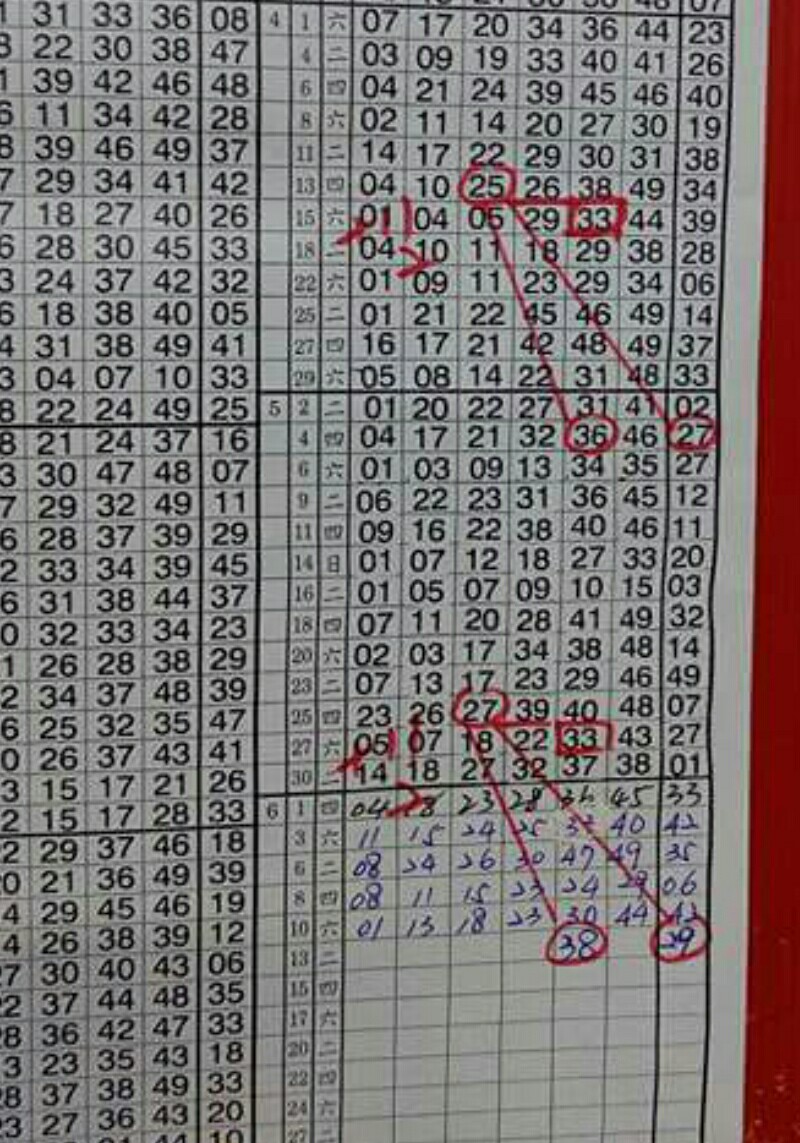 31 33 36 08 4 1 六 07 17 20 34 36 44 23
22 30 38 47 4 二 03 09 19 33 40 41 26
39 42 46 48 6 四 04 21 24 39 45 46 40
11 34 42 28 8 六 02 11 14 20 27 30 19
39 46 49 37 11 二 14 17 22 29 30 31 38
29 34 41 42 13 四 04 10 25 26 38 49 34
18 27 40 26 15 六 01 04 05 29 33 44 39
28 30 45 33 18 二 04 10 11 18 29 38 28
24 37 42 32 22 六 01 09 11 23 29 34 06
18 38 40 05 25 二 01 21 22 45 46 49 14
31 38 49 41 27 四 16 17 21 42 48 49 37
04 07 10 33 29 六 05 08 14 22 31 48 33
22 24 49 25 5 2 二 01 20 22 27 31 41 02
21 24 37 16 4 四 04 17 21 32 36 46 27
30 47 48 07 6 六 01 03 09 13 34 35 27
29 32 49 11 9 二 06 22 23 31 36 45 12
28 37 39 29 11 四 09 16 22 38 40 46 11
33 34 39 45 14 日 01 07 12 18 27 33 20
31 38 44 37 16 二 01 05 07 09 10 15 03
32 33 34 23 18 四 07 11 20 28 41 49 32
26 28 38 29 20 六 02 03 17 34 38 48 14
34 37 48 39 23 二 07 13 17 23 29 46 49
25 32 35 47 25 四 23 26 27 39 40 48 07
26 37 43 41 27 六 05 07 18 22 33 43 27
15 17 21 26 30 二 14 18 27 32 37 38 01
15 17 28 33 6 1 四 04 18 23 28 45 33
29 37 46 18 3 六 11 15 24 25 40 42
21 36 49 39 6 二 08 24 26 30 47 49 35
29 45 46 19 8 四 08 11 15 23 24 06
26 38 39 12 10 六 01 13 18 23 30 44 42
30 40 43 06 13 二 38 29
37 44 48 35 15 四
36 42 47 33 17 六
23 35 43 18 20 二
37 38 49 33 22 四
27 36 43 20 24 六
27 二